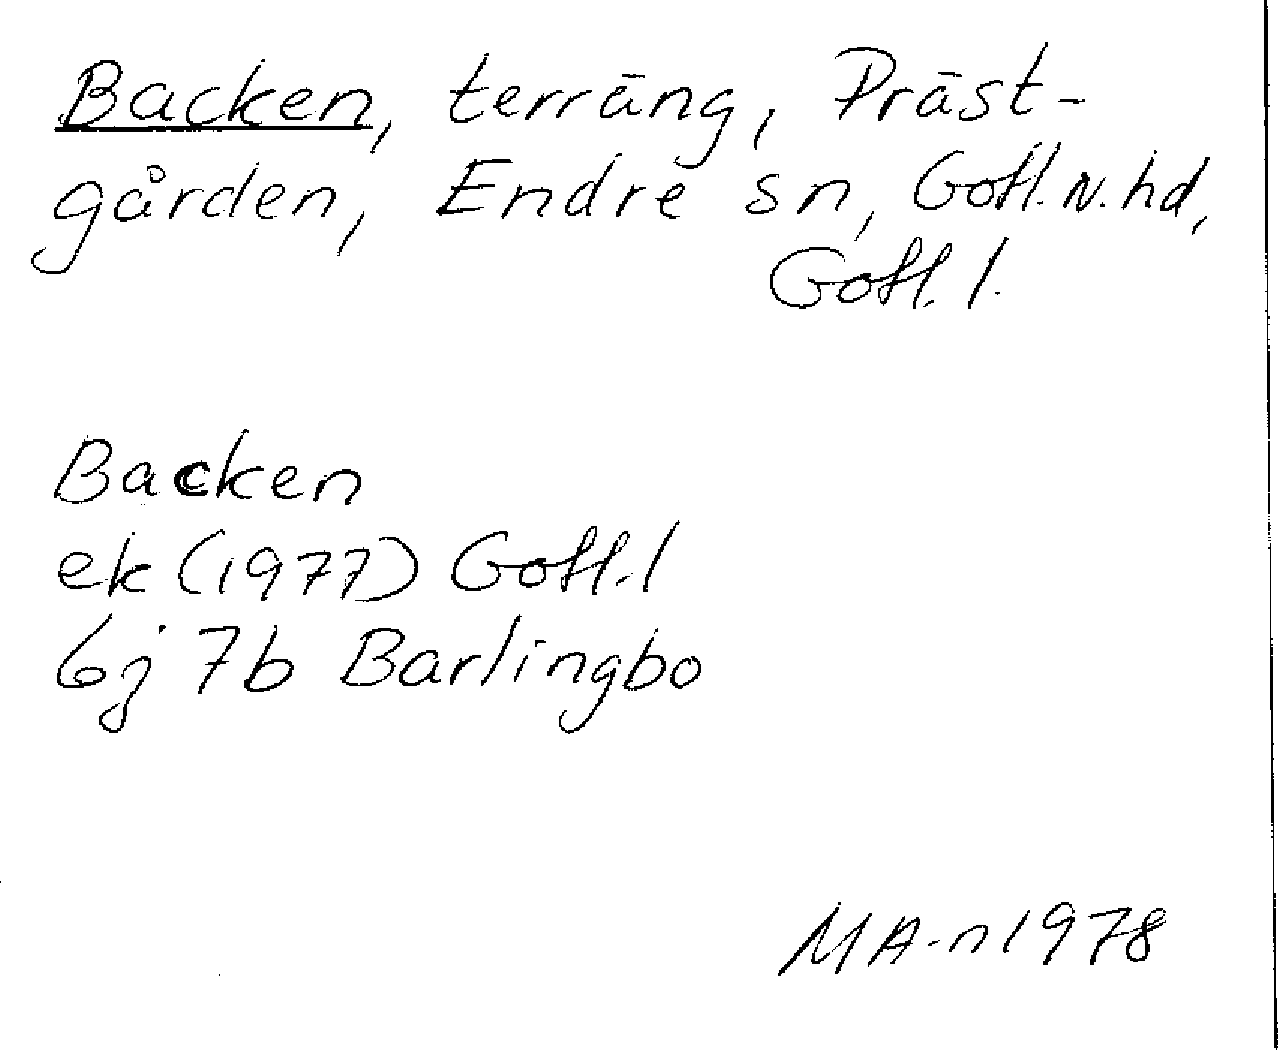 Backen, terräng, Präst-
gården, Endre sn, Gotl. N. hd,
Gotl. l.
Backen
ek (1977) Gotl. l
6j 7b Barlingbo
MA-n 1978